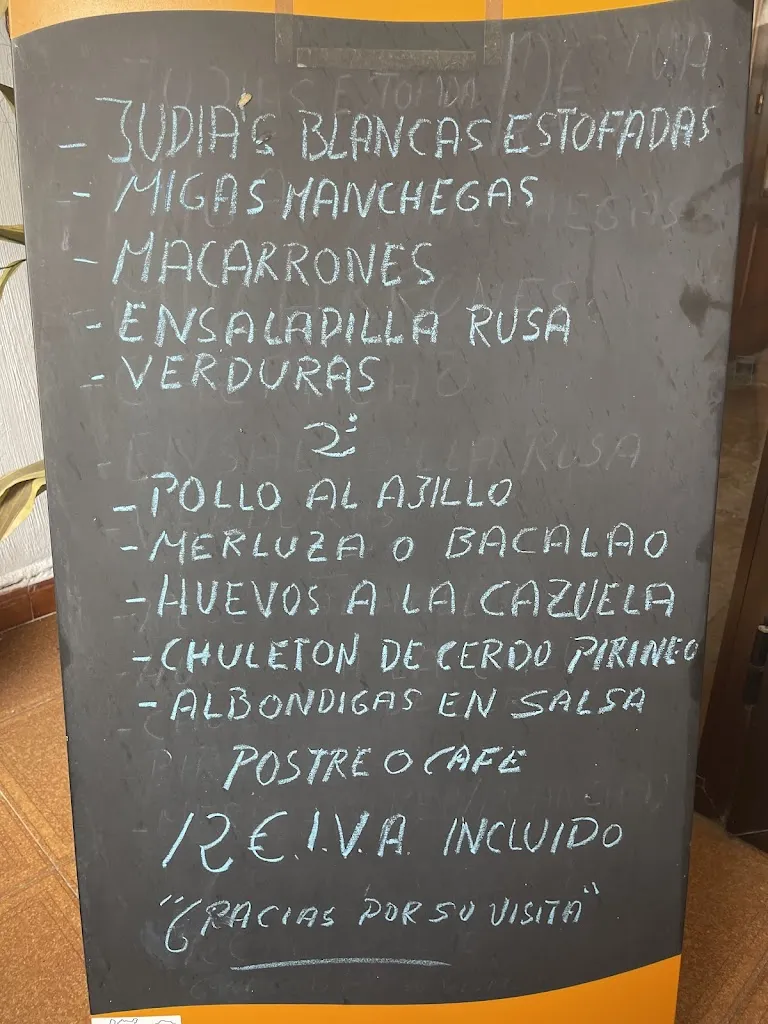 - JUDIA'S BLANCAS ESTOFADAS
- MIGAS MANCHEGAS
- MACARRONES
- ENSALADILLA RUSA
- VERDURAS
2º
- POLLO AL AJILLO
- MERLUZA O BACALAO
- HUEVOS A LA CAZUELA
- CHULETON DE CERDO PIRINEO
- ALBONDIGAS EN SALSA
POSTRE O CAFE
12 €. I.V.A. INCLUIDO
"GRACIAS POR SU VISITA"